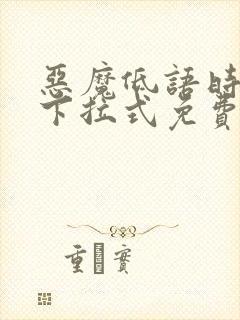 惡魔低語時
下拉式免費
重 實